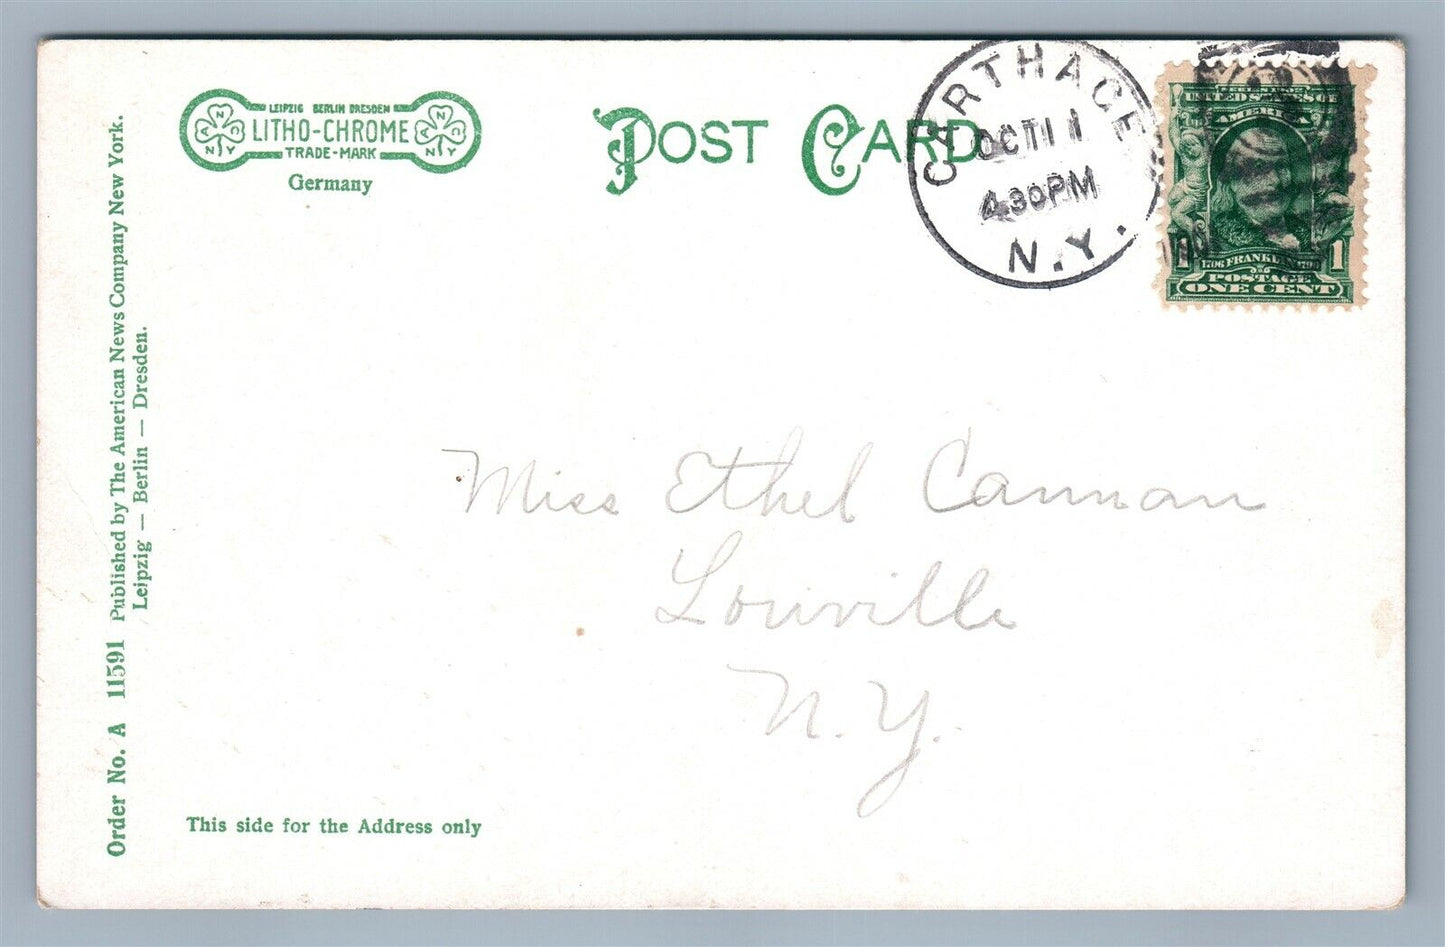 LEIPZIG BERLIN DRESDEN
LITHO-CHROME
TRADE-MARK
A N C
N Y
A N C
N Y
Germany
POST CARD
CARTHAGE
OCT 11
4.30PM
N.Y.
UNITED STATES OF
AMERICA
1 1
1706 FRANKLIN 1790
POSTAGE
ONE CENT
Order No. A 11591 Published by The American News Company New York.
Leipzig — Berlin — Dresden.
Miss Ethel Cannan
Louville
N. Y.
This side for the Address only